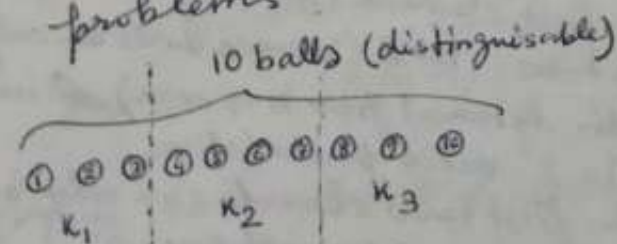 problems
10 balls (distinguisable)
① ② ③ ④ ⑤ ⑥ ⑦ ⑧ ⑨ ⑩
K₁ K₂ K₃